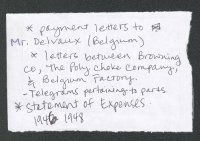 * payment letters to
Mr. Delvaux (Belgium)
* letters between Browning
Co, The Poly Choke Company,
& Belgium Factory.
- Telegrams pertaining to parts
* Statement of Expenses
1946 1948